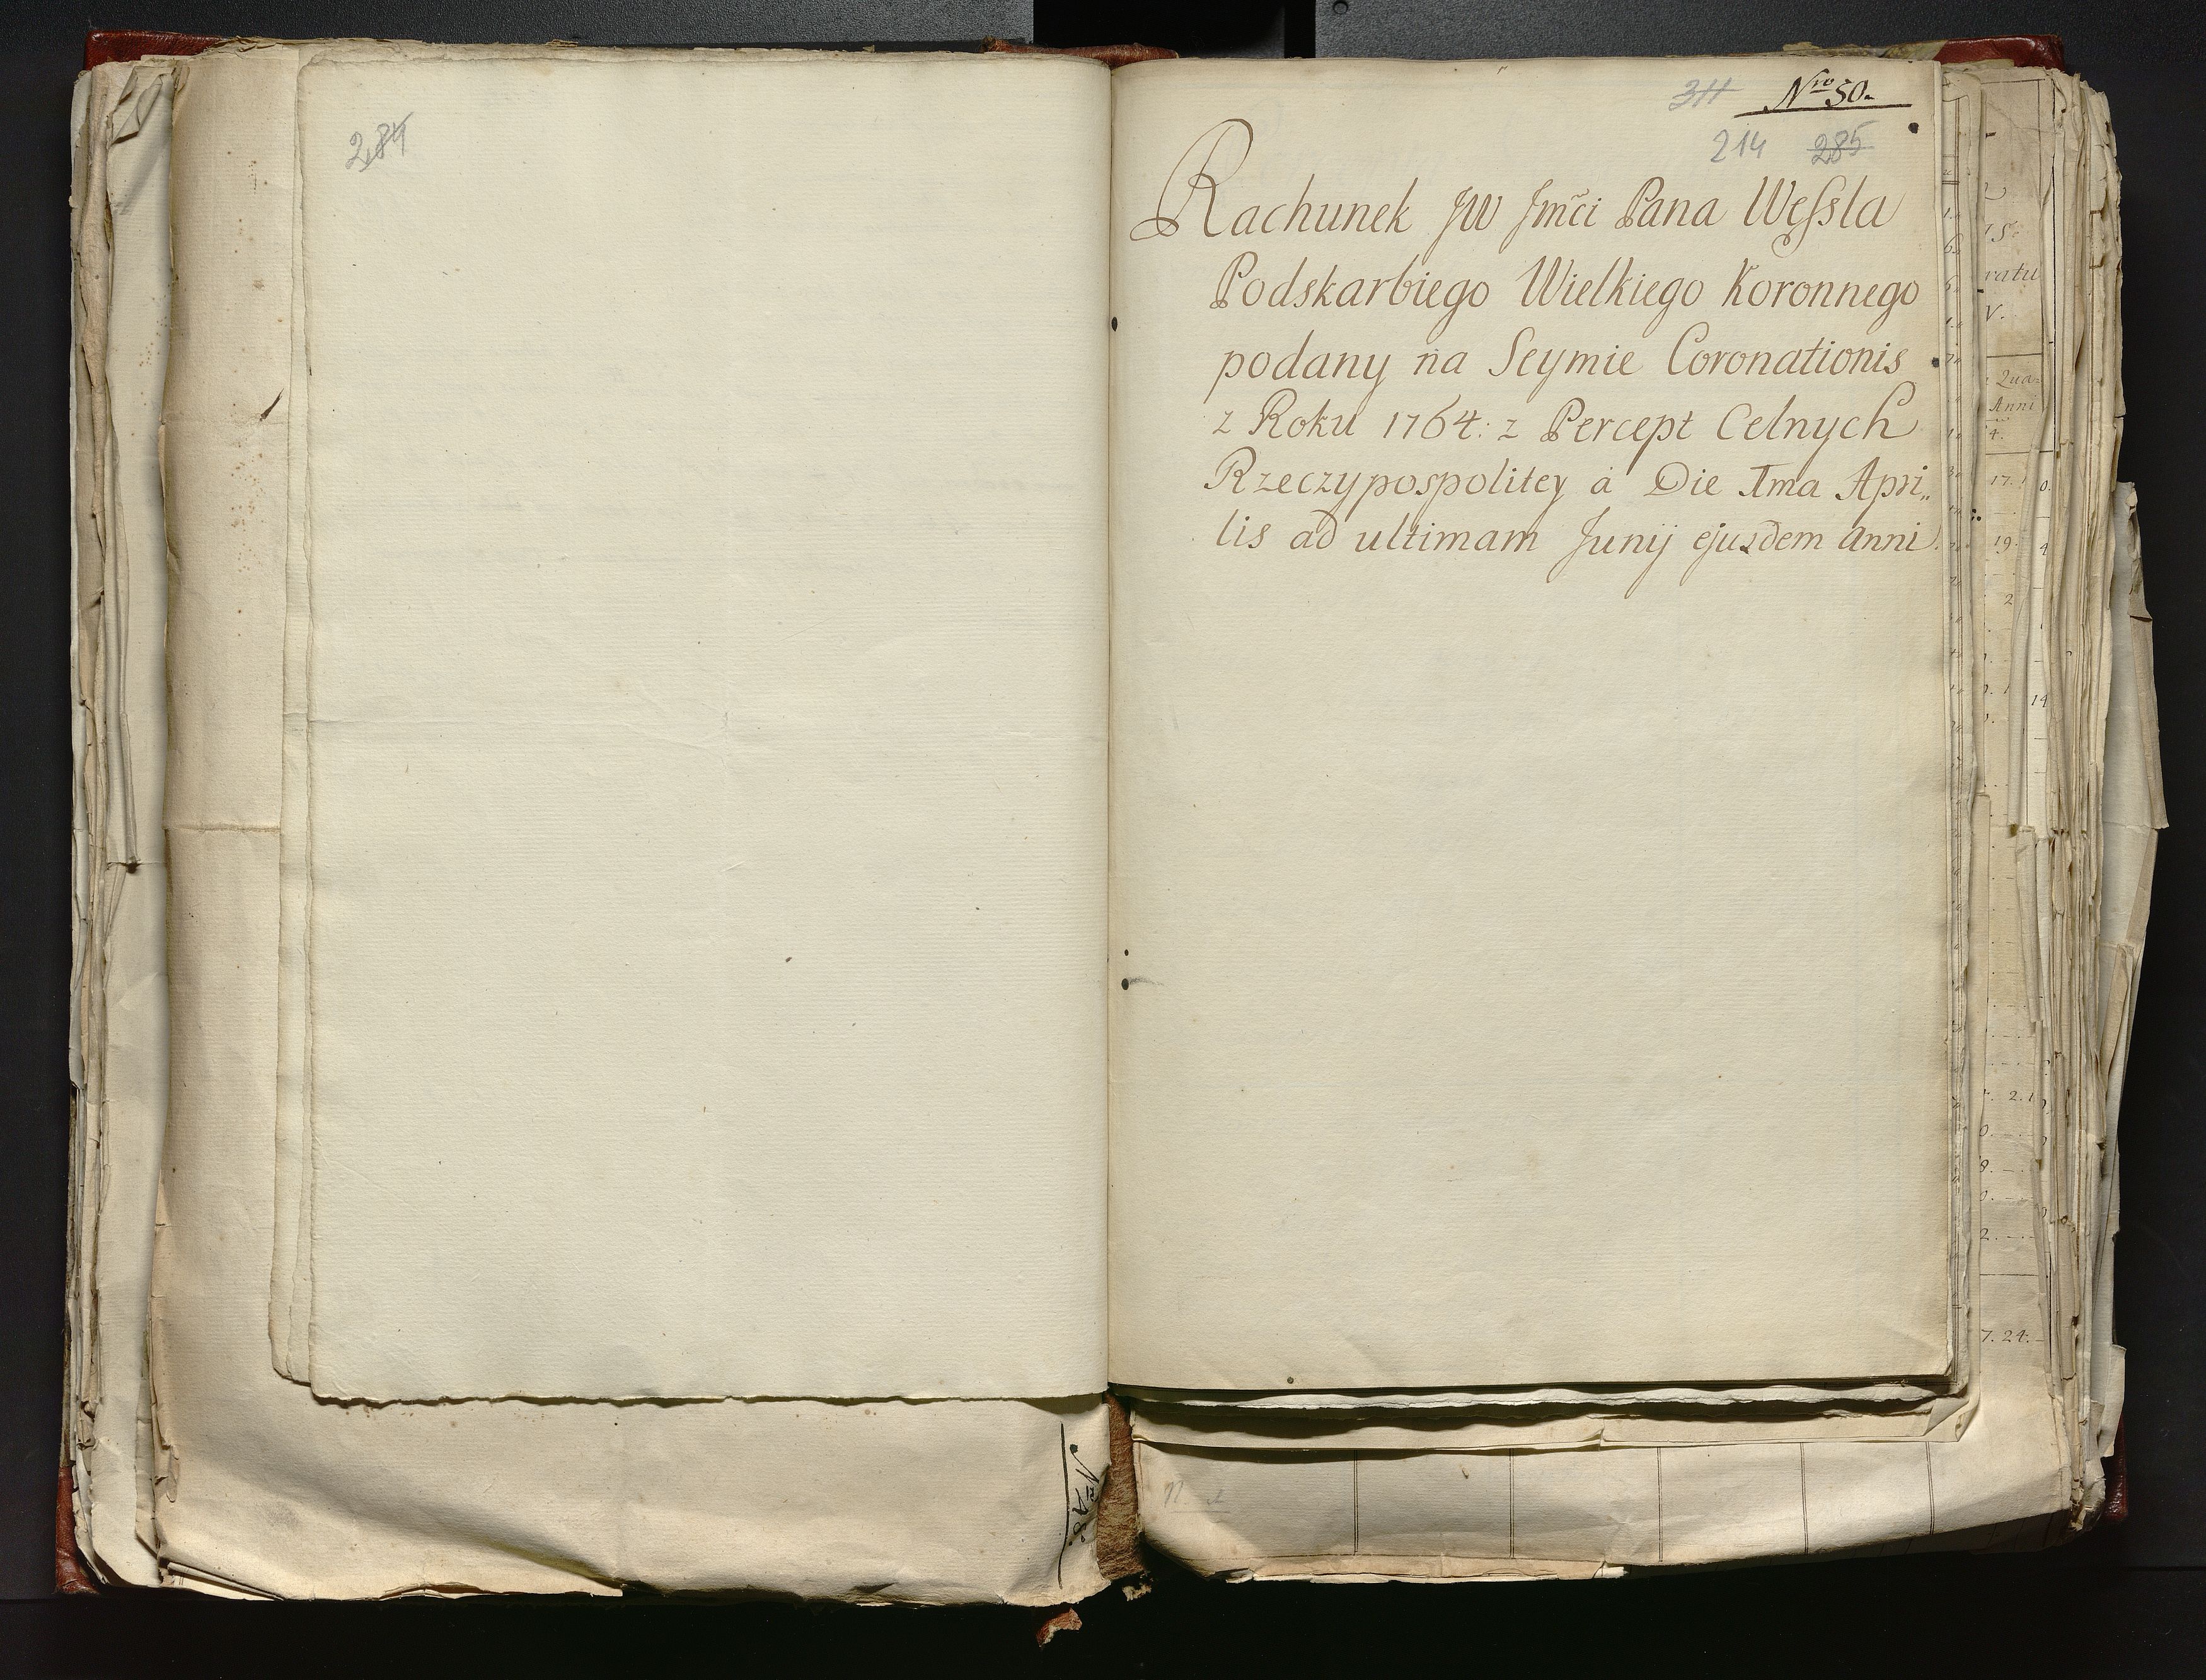 284
311 Nro 50.
214 285
Rachunek JW Jmći Pana Weſsla
Podskarbiego Wielkiego Koronnego
podany na Seymie Coronationis
z Roku 1764: z Percept Celnych
Rzeczypospolitey à Die 1ma Apri„
lis ad ultimam Junij ejusdem Anni
ratu
V.
Qua
Anni
4.
17.
19.
2
14
2.1
8.
2.
7.24.